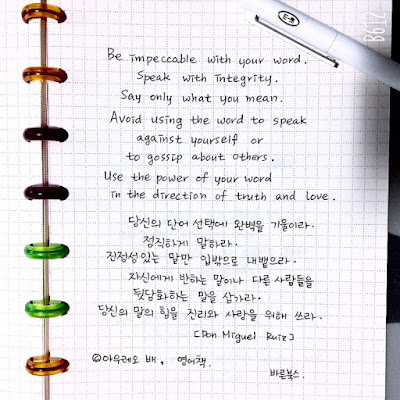 Be impeccable with your word.
Speak with integrity.
Say only what you mean.
Avoid using the word to speak
against yourself or
to gossip about others.
Use the power of your word
in the direction of truth and love.
당신의 단어 선택에 완벽을 기울이라.
정직하게 말하라.
진정성있는 말만 입밖으로 내뱉으라.
자신에게 반하는 말이나 다른 사람들을
뒷담화하는 말을 삼가라.
당신의 말의 힘을 진리와 사랑을 위해 쓰라.
[Don Miguel Ruiz]
©아우레오 배, 영어책.
바른북스.
B612